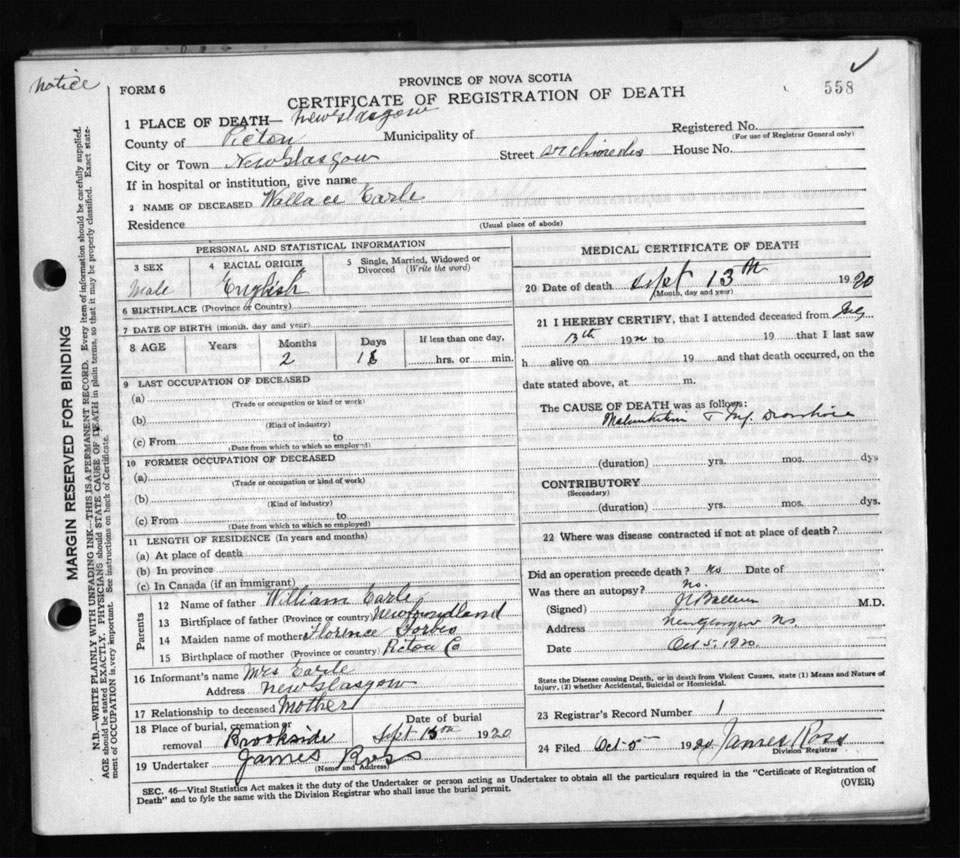 notice
FORM 6
PROVINCE OF NOVA SCOTIA
558
CERTIFICATE OF REGISTRATION OF DEATH
1 PLACE OF DEATH— New Glasgow
County of Pictou Municipality of
Registered No.
(For use of Registrar General only)
City or Town New Glasgow Street House No.
If in hospital or institution, give name
2 NAME OF DECEASED Wallace Earle
Residence
(Usual place of abode)
MARGIN RESERVED FOR BINDING
N.B.—WRITE PLAINLY WITH UNFADING INK—THIS IS A PERMANENT RECORD. Every item of information should be carefully supplied.
AGE should be stated EXACTLY. PHYSICIANS should STATE CAUSE OF DEATH in plain terms, so that it may be properly classified. Exact statement of OCCUPATION is very important. See instructions on back of Certificate.
PERSONAL AND STATISTICAL INFORMATION
3 SEX
Male
4 RACIAL ORIGIN
English
5 Single, Married, Widowed or Divorced (Write the word)
6 BIRTHPLACE (Province or Country)
7 DATE OF BIRTH (month, day and year)
8 AGE Years Months Days If less than one day,
2 18 hrs. or min.
9 LAST OCCUPATION OF DECEASED
(a)
(Trade or occupation or kind or work)
(b)
(Kind of industry)
(c) From to
(Date from which to which so employed)
10 FORMER OCCUPATION OF DECEASED
(a)
(Trade or occupation or kind of work)
(b)
(Kind of industry)
(c) From to
(Date from which to which so employed)
11 LENGTH OF RESIDENCE (In years and months)
(a) At place of death
(b) In province
(c) In Canada (if an immigrant)
Parents
12 Name of father William Earle
13 Birthplace of father (Province or country) Newfoundland
14 Maiden name of mother Florence Forbes
15 Birthplace of mother (Province or country) Pictou Co
16 Informant's name Mrs Earle
Address New Glasgow
17 Relationship to deceased Mother
18 Place of burial, cremation or removal Brookside
Date of burial
Sept 15th 1920
19 Undertaker James Ross
(Name and Address)
MEDICAL CERTIFICATE OF DEATH
20 Date of death Sept 13th 1920
(Month, day and year)
21 I HEREBY CERTIFY, that I attended deceased from July
13th 1920 to 19 that I last saw
h alive on 19 and that death occurred, on the
date stated above, at m.
The CAUSE OF DEATH was as follows:
Malnutrition
(duration) yrs. mos. dys
CONTRIBUTORY
(Secondary)
(duration) yrs. mos. dys.
22 Where was disease contracted if not at place of death?
Did an operation precede death? No Date of
Was there an autopsy? No.
(Signed) M.D.
Address New Glasgow N.S.
Date Oct 5. 1920.
State the Disease causing Death, or in death from Violent Causes, state (1) Means and Nature of Injury, (2) whether Accidental, Suicidal or Homicidal.
23 Registrar's Record Number 1
24 Filed Oct 5 1920 James Ross
Division Registrar
SEC. 46—Vital Statistics Act makes it the duty of the Undertaker or person acting as Undertaker to obtain all the particulars required in the "Certificate of Registration of
Death" and to fyle the same with the Division Registrar who shall issue the burial permit. (OVER)